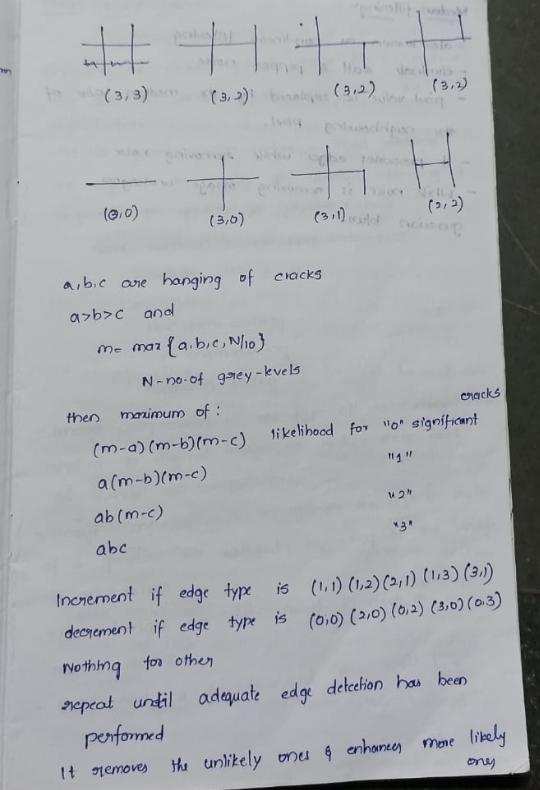 (3,3) (3,2) (3,2) (3,2)
(0,0) (3,0) (3,1) (2,2)
a,b,c are hanging of cracks
a>b>c and
m= max {a,b,c, N/10}
N-no.of grey-levels
then maximum of :
(m-a)(m-b)(m-c) likelihood for "0" significant cracks
a(m-b)(m-c) "1"
ab(m-c) "2"
abc "3"
Increment if edge type is (1,1) (1,2) (2,1) (1,3) (3,1)
decrement if edge type is (0,0) (2,0) (0,2) (3,0) (0,3)
Nothing for other
repeat until adequate edge detection has been
performed
It removes the unlikely ones & enhances more likely
ones